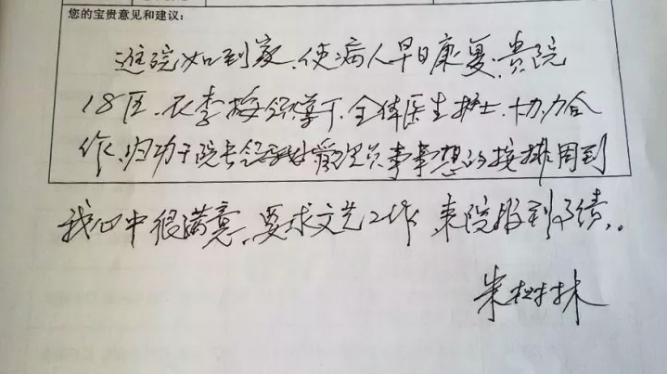 您的宝贵意见和建议：
进院如到家、使病人早日康复、贵院
18区、在李梅领导下、全体医生护士、协力合
作、归功于院长领导好 事事想的接排周到
我心中很满意、要求文艺工作 来院服
朱树林